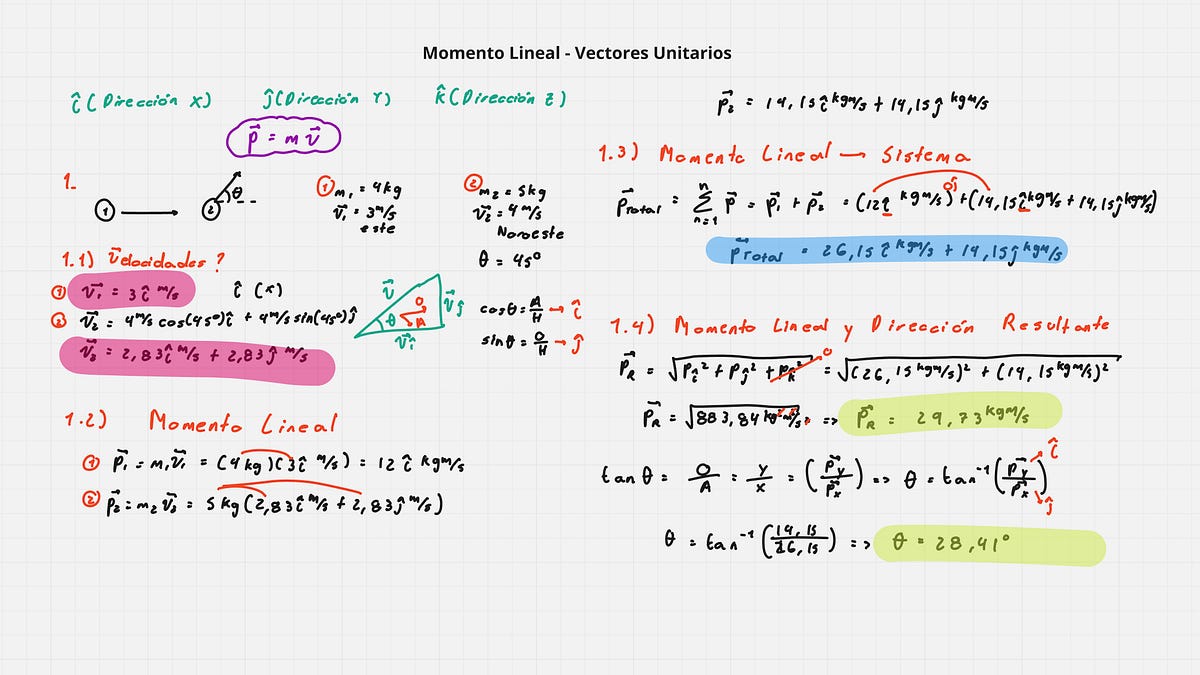 Momento Lineal - Vectores Unitarios
î (Dirección X) ĵ (Dirección Y) k̂ (Dirección Z)
p⃗ = m v⃗
1.
① ② θ
① m₁ = 4kg
v⃗₁ = 3 m/s
este
② m₂ = 5kg
v⃗₂ = 4 m/s
Noroeste
θ = 45°
1.1) v⃗elocidades ?
① v⃗₁ = 3 î m/s î (x)
② v⃗₂ = 4 m/s cos(45°) î + 4 m/s sin(45°) ĵ
v⃗₂ = 2,83 î m/s + 2,83 ĵ m/s
v⃗ θ O A v⃗ĵ v⃗î
cosθ = A/H → î
sinθ = O/H → ĵ
1.2) Momento Lineal
① p⃗₁ = m₁v⃗₁ = (4kg)(3 î m/s) = 12 î kgm/s
② p⃗₂ = m₂v⃗₂ = 5kg(2,83 î m/s + 2,83 ĵ m/s)
p⃗₂ = 14,15 î kgm/s + 14,15 ĵ kgm/s
1.3) Momento Lineal → Sistema
p⃗Total = Σ n n=1 p⃗ = p⃗₁ + p⃗₂ = (12 î kgm/s 0ĵ) + (14,15 î kgm/s + 14,15 ĵ kgm/s)
p⃗Total = 26,15 î kgm/s + 14,15 ĵ kgm/s
1.4) Momento Lineal y Dirección Resultante
p⃗R = √(Pî² + Pĵ² + Pk̂² 0) = √((26,15 kgm/s)² + (14,15 kgm/s)²
p⃗R = √883,84 kg²m²/s² => p⃗R = 29,73 kgm/s
tanθ = O/A = y/x = (p⃗y/p⃗x) => θ = tan⁻¹(p⃗y/p⃗x) î ĵ
θ = tan⁻¹(14,15/26,15) => θ = 28,41°